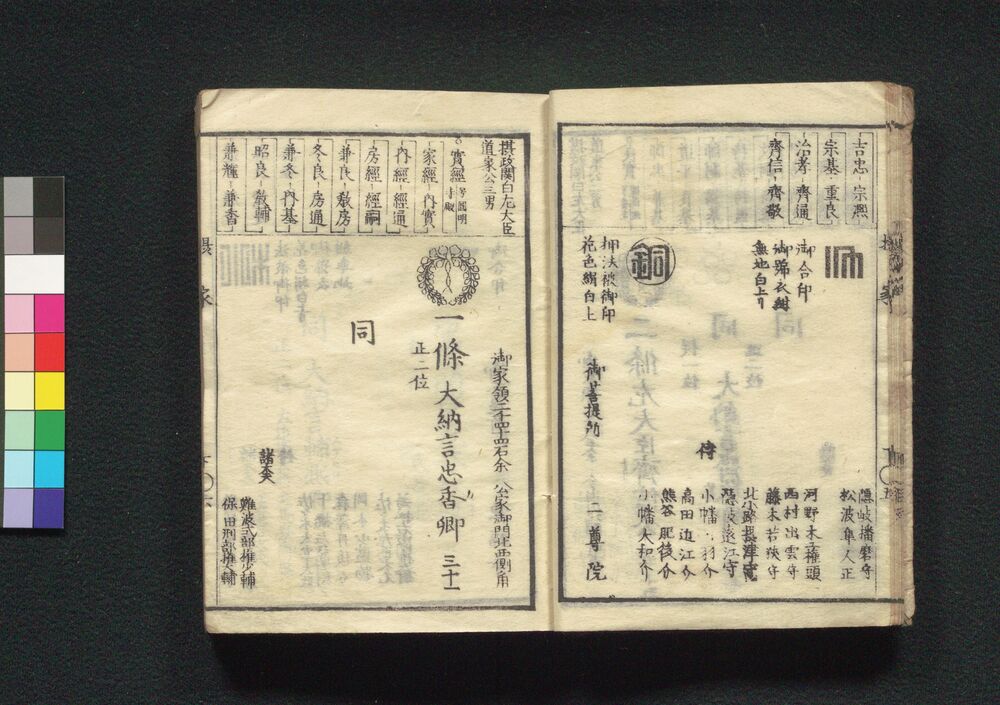 吉忠 宗熙
宗基 重良
治孝 齊通
齊信 齊敬
御合印
御歸衣紺
無地白上り
銅
押法被御印
花色絹白上
御菩提所
二尊院
侍
隠岐播磨守
松波隼人正
河野木工権頭
西村出雲守
藤木若狭守
北小路摂津守
隠岐遠江守
小幡 羽介
高田近江介
熊谷肥後介
小幡大和介
摂政関白左大臣
道家公三男
實經
家經 内實
内經 經通
房經 經嗣
兼良 教房
冬良 房通
兼冬 内基
昭良 教輔
兼輝 兼香
御家領二千四十四石余 公家御門北西側角
一條大納言忠香卿 三十一
正二位
同
諸太夫
難波式部権少輔
保田刑部権大輔
摂家